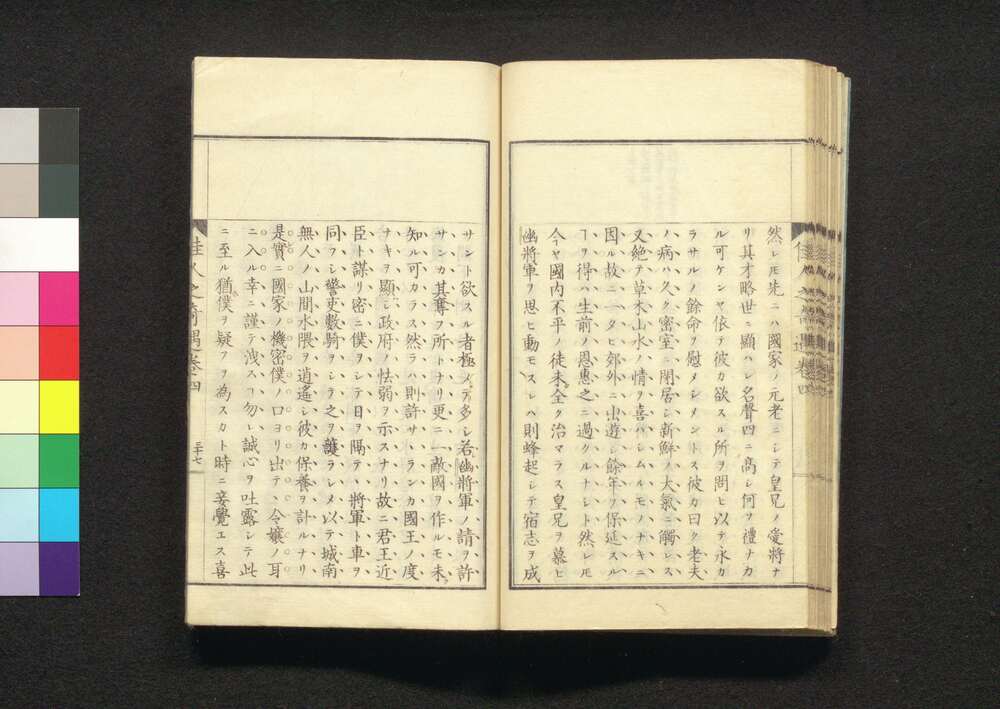 然レ𪜈先ニハ國家ノ元老ニシテ皇兄ノ愛將ナ
リ其才略世ニ顯ハレ名聲四ニ高シ何ヲ禮ナカ
ル可ケンヤ依テ彼カ欲スル所ヲ問ヒ以テ永カ
ラサルノ餘命ヲ慰メシメントス彼カ曰ク老夫
ハ病ハ久ク密室ニ閉居シ新鮮ノ大氣ニ觸レス
又絶テ草木山水ノ情ヲ喜ハシムルモノナキニ
因ル故ニ一タヒ郊外ニ出遊シ餘年ヲ保延スル
ヿヲ得ハ生前ノ恩惠之ニ過クルナシト然レ𪜈
今ヤ國内不平ノ徒未全ク治マラス皇兄ヲ慕ヒ
幽將軍ヲ思ヒ動モスレハ則蜂起シテ宿志ヲ成
サント欲スル者極メテ多シ若幽將軍ノ請ヲ許
サンカ其奪フ所トナリ更ニ一敵國ヲ作ルモ未
知ル可カラス然ラハ則許サヽランカ國王ノ度
ナキヲ顯シ政府ノ怯弱ヲ示スナリ故ニ君王近
臣ト謀リ密ニ僕ヲシテ日ヲ隔テヽ將軍ト車ヲ
同フシ警吏數騎ヲシテ之ヲ護ラシメ以テ城南
無人ノ山間水隈ヲ逍遙シ彼カ保養ヲ計ルナリ
是實ニ國家ノ機密僕ノ口ヨリ出テヽ令孃ノ耳
ニ入ル幸ニ謹テ洩スヿ勿レ誠心ヲ吐露シテ此
ニ至ル猶僕ヲ疑フヲ為スカト時ニ妾覺エス喜
佳人之奇遇卷四
三十七